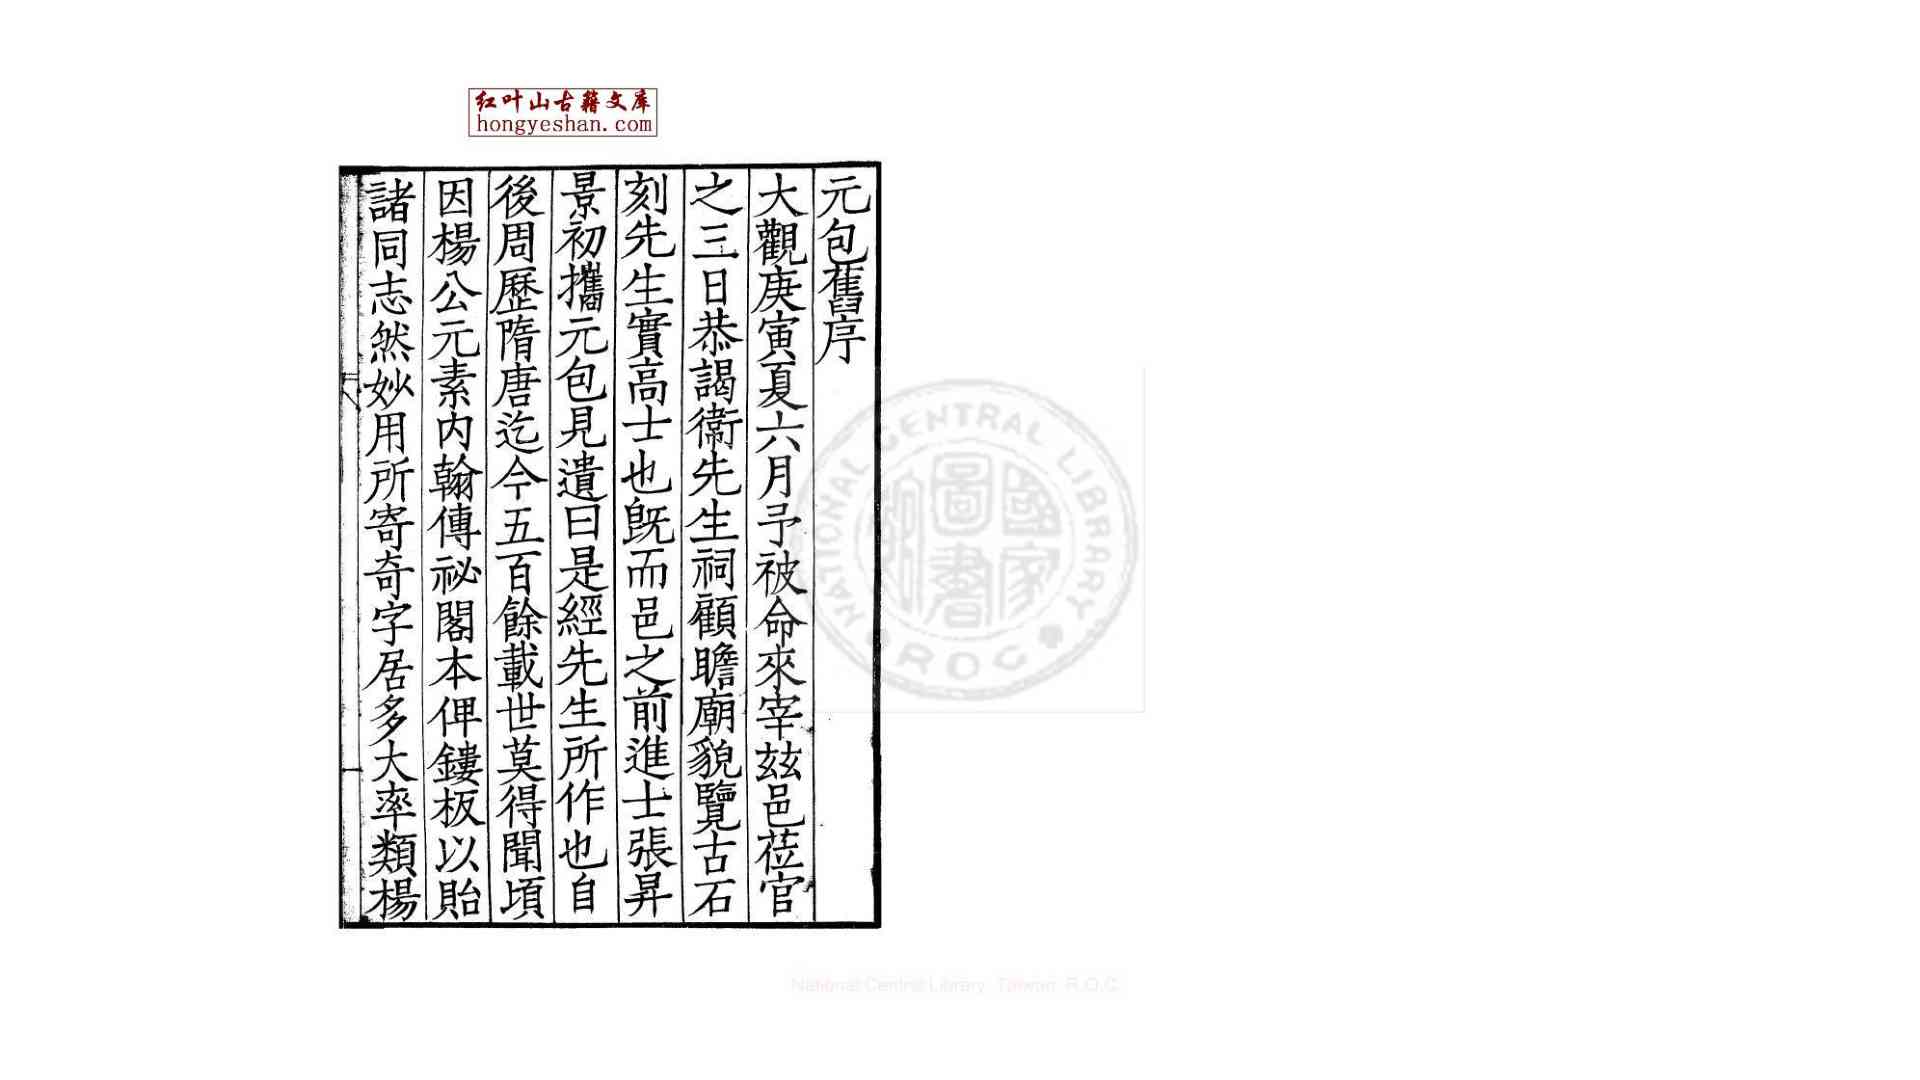 红叶山古籍文库
hongyeshan.com
元包舊序
大觀庚寅夏六月予被命來宰玆邑莅官
之三日恭謁衛先生祠顧瞻廟貌覽古石
刻先生實高士也旣而邑之前進士張昇
景初攜元包見遺曰是經先生所作也自
後周歷隋唐迄今五百餘載世莫得聞頃
因楊公元素内翰傳祕閣本俾鏤板以貽
諸同志然妙用所寄奇字居多大率類楊
NATIONAL CENTRAL LIBRARY
R.O.C
國家圖書
National Central Library, Taiwan, R.O.C